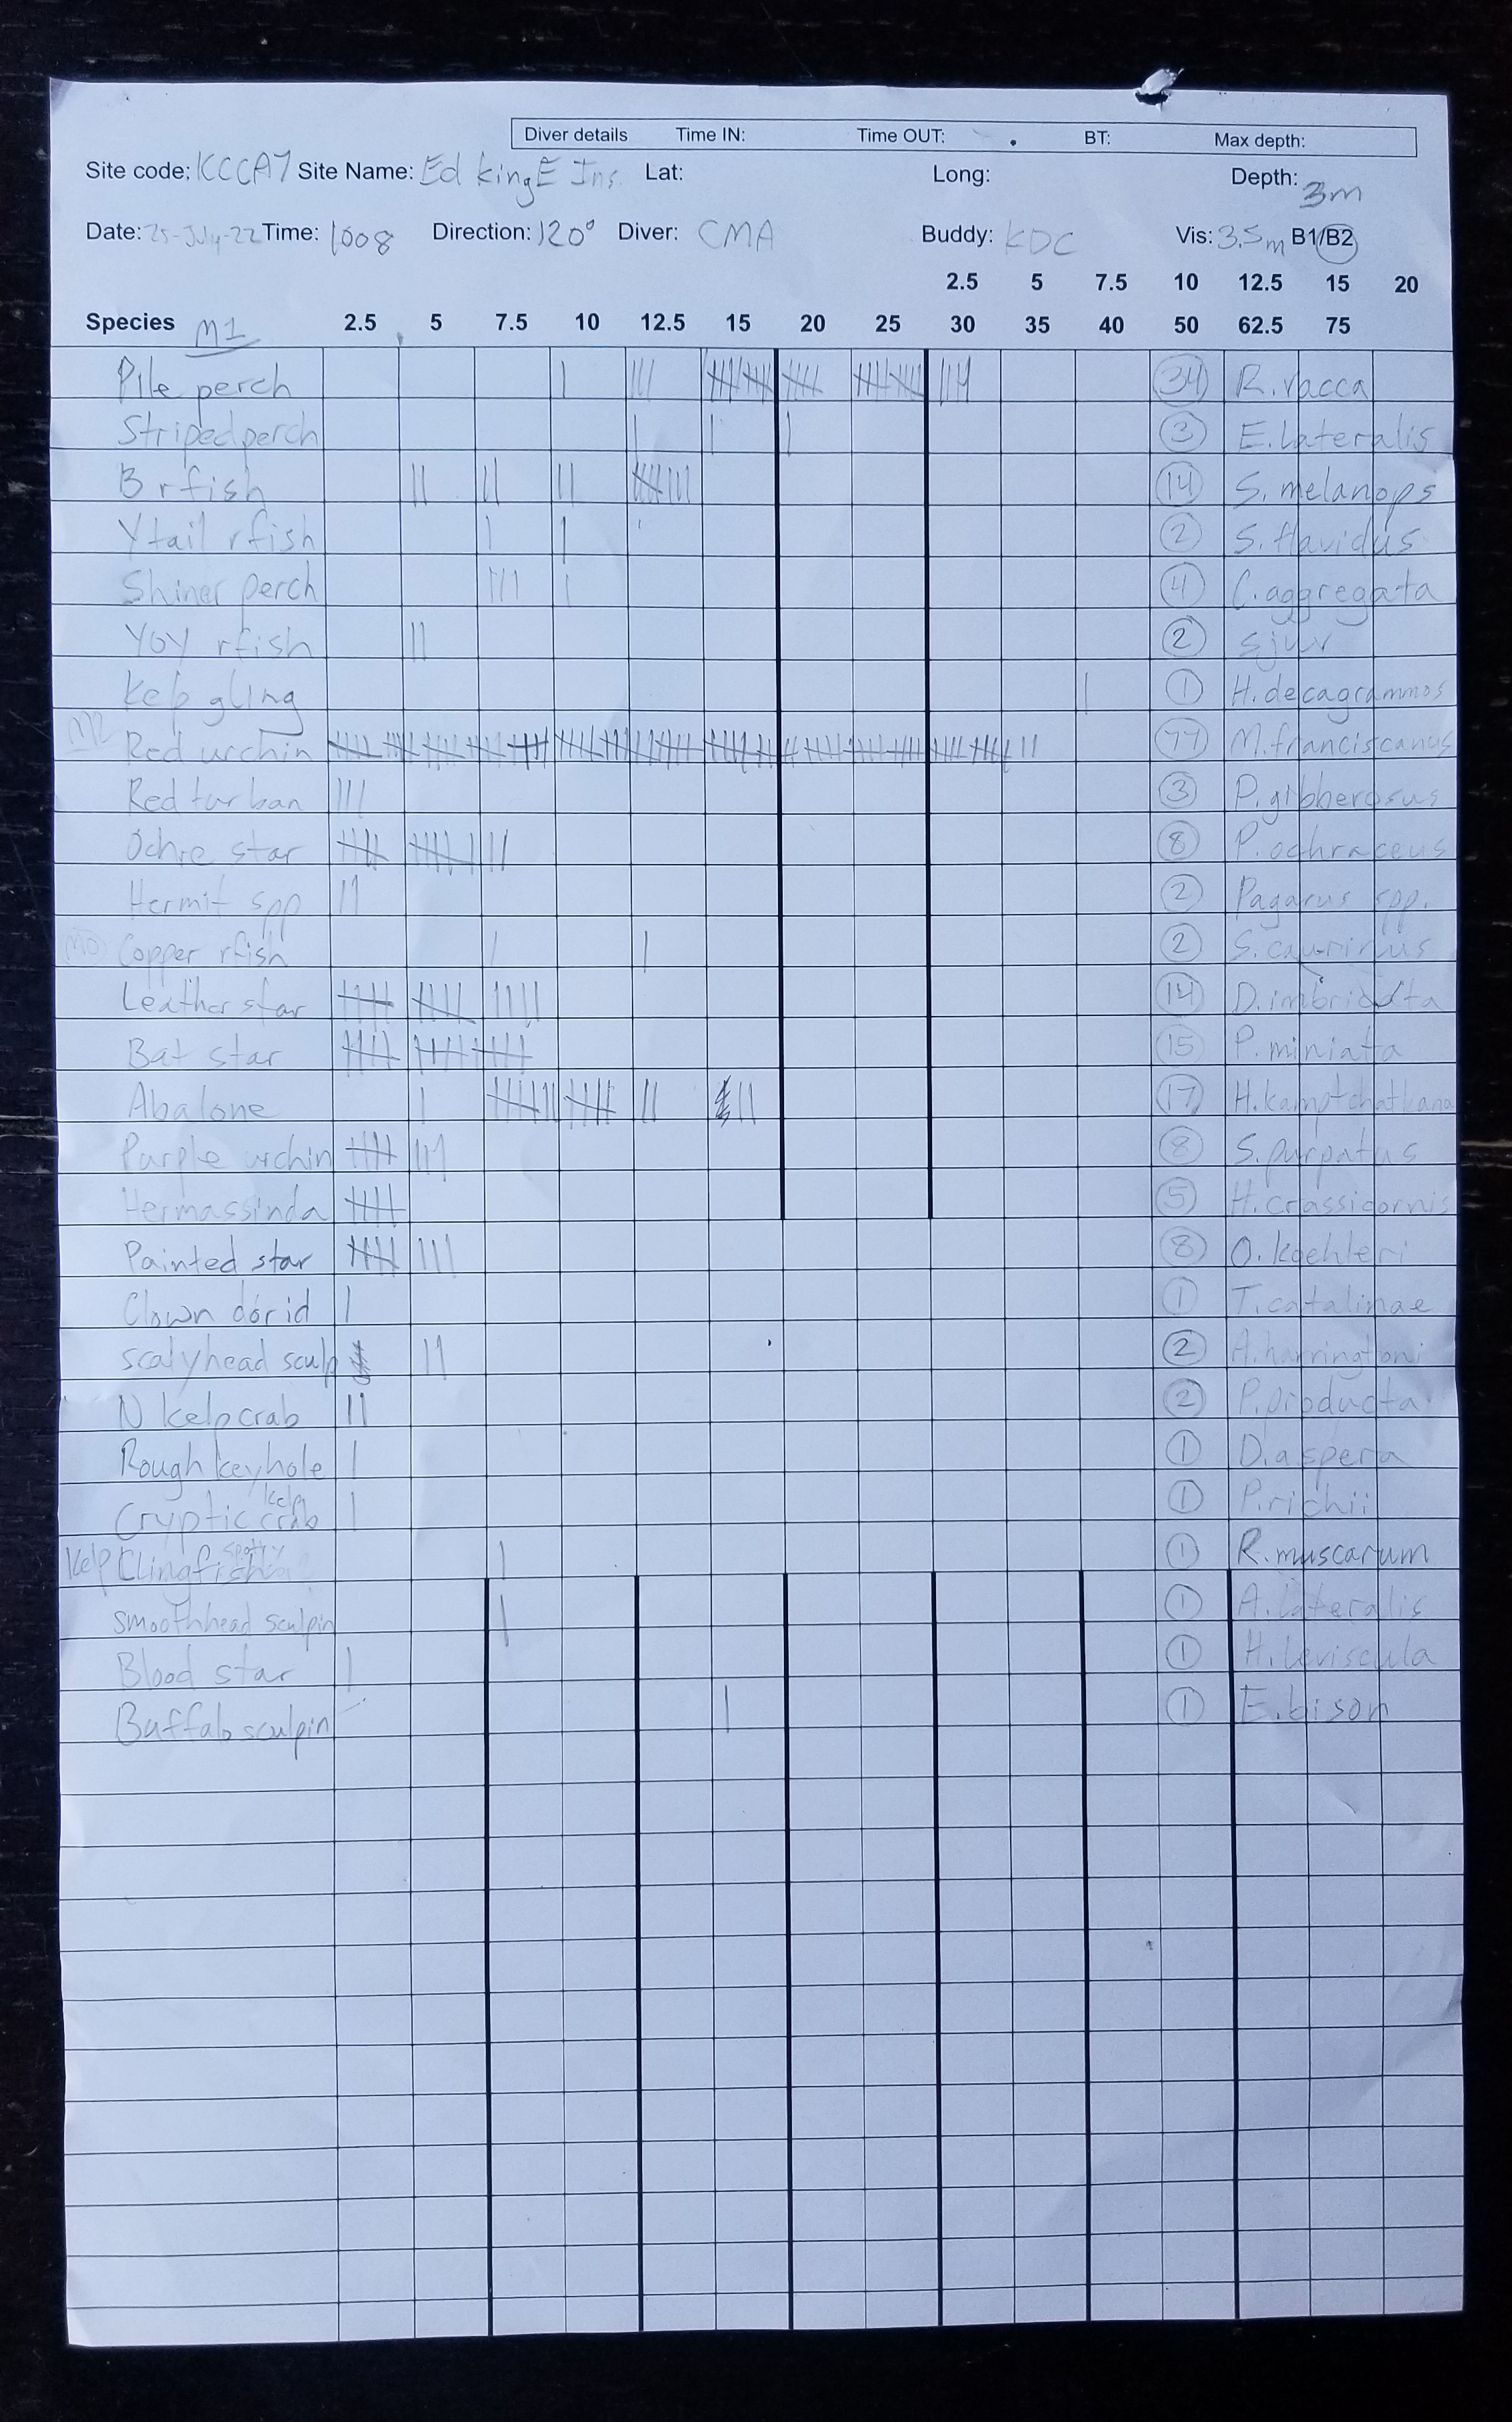 Diver details Time IN: Time OUT: BT: Max depth:
Site code: KCCA7 Site Name: Ed King E Ins. Lat: Long: Depth: 3m
Date: 25-July-22 Time: 1008 Direction: 120° Diver: CMA Buddy: KDC Vis: 3.5m B1/B2
2.5 5 7.5 10 12.5 15 20
Species M1 2.5 5 7.5 10 12.5 15 20 25 30 35 40 50 62.5 75
Pile perch 34 R. vacca
Striped perch 3 E. lateralis
B rfish 14 S. melanops
Ytail rfish 2 S. flavidus
Shiner perch 4 C. aggregata
YOY rfish 2 sjuv
Kelp gling 1 H. decagrammos
M2 Red urchin 77 M. franciscanus
Red turban 3 P. gibberosus
Ochre star 8 P. ochraceus
Hermit spp 2 Pagarus spp.
M0 Copper rfish 2 S. caurinus
Leather star 14 D. imbricata
Bat star 15 P. miniata
Abalone 17 H. kamptchatkana
Purple urchin 8 S. purpatus
Hermassinda 5 H. crassicornis
Painted star 8 O. koehleri
Clown dorid 1 T. catalinae
scalyhead sculp 2 A. harringtoni
N kelp crab 2 P. producta
Rough keyhole 1 D. aspera
Cryptic kelp crab 1 P. richii
Kelp Clingfish 1 R. muscarum
smoothhead sculpin 1 A. lateralis
Blood star 1 H. leviscula
Buffalo sculpin 1 E. bison